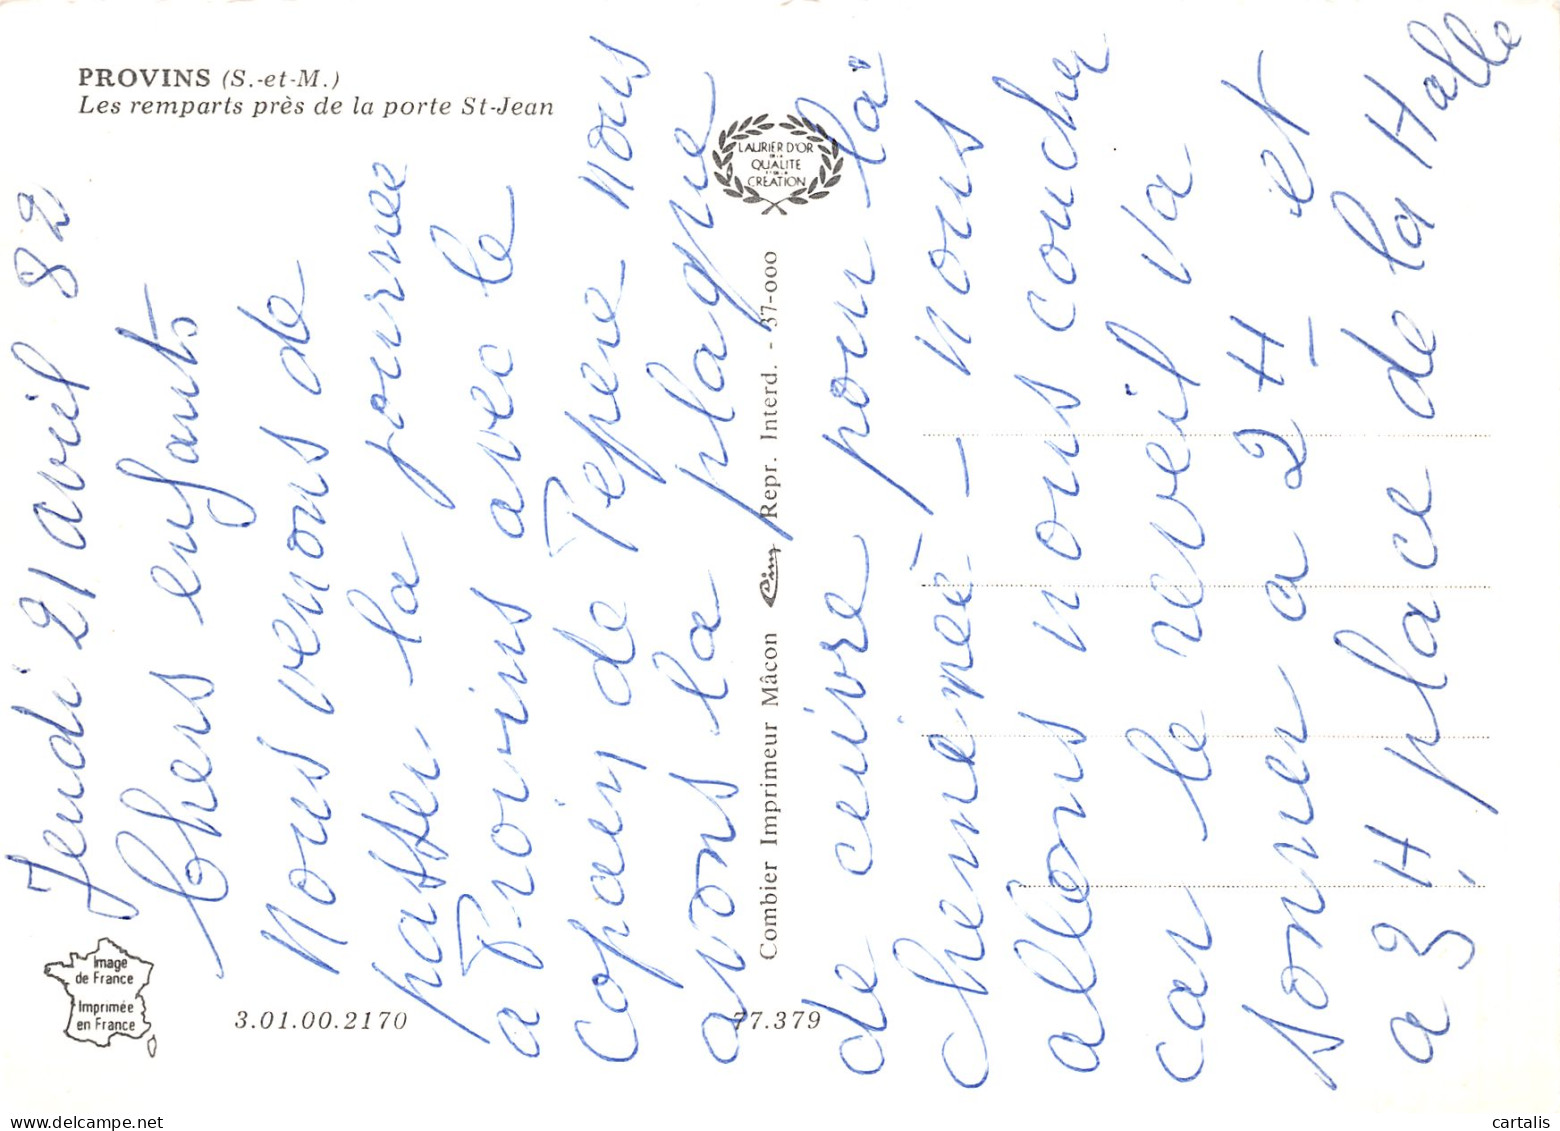 PROVINS (S.-et-M.)
Les remparts près de la porte St-Jean
LAURIER D'OR
DE LA
QUALITE
ET DE LA
CREATION
Jeudi 21 avril 82
Chers enfants
Nous venons de
passer la journee
a Provins avec le
copain de Pepere nous
avons la plaque
de cuivre pour la
cheminée - nous
allons nous coucher
car le reveil va
sonner a 2H - et
a 3H place de la Halle
Combier Imprimeur Mâcon Cim Repr. Interd. - 37-000
Image
de France
Imprimée
en France
3.01.00.2170
77.379
www.delcampe.net
cartalis